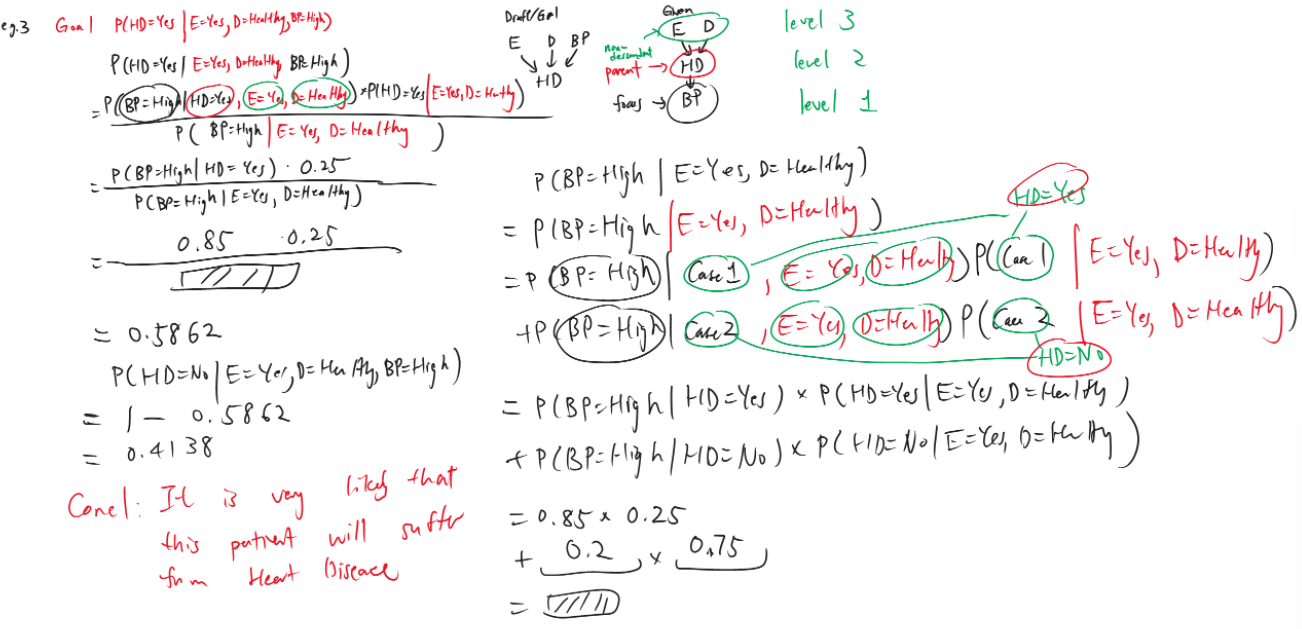 eg.3 Goal P(HD=Yes | E=Yes, D=Healthy, BP=High)
P(HD=Yes | E=Yes, D=Healthy, BP=High)
= P(BP=High | HD=Yes, E=Yes, D=Healthy) × P(HD=Yes | E=Yes, D=Healthy)
P( BP=High | E=Yes, D=Healthy )
= P(BP=High | HD=Yes) · 0.25
P(BP=High | E=Yes, D=Healthy)
= 0.85 · 0.25
= 0.5862
P(HD=No | E=Yes, D=Healthy, BP=High)
= 1 - 0.5862
= 0.4138
Concl: It is very likely that
this patient will suffer
from Heart Disease
Draft/Goal
E D BP
HD
Given
E D
non-descendant
parent → HD
focus → BP
level 3
level 2
level 1
P(BP=High | E=Yes, D=Healthy)
= P(BP=High | E=Yes, D=Healthy)
HD=Yes
= P(BP=High | Case 1, E=Yes, D=Healthy) P(Case 1 | E=Yes, D=Healthy)
+ P(BP=High | Case 2, E=Yes, D=Healthy) P(Case 2 | E=Yes, D=Healthy)
HD=No
= P(BP=High | HD=Yes) × P(HD=Yes | E=Yes, D=Healthy)
+ P(BP=High | HD=No) × P(HD=No | E=Yes, D=Healthy)
= 0.85 × 0.25
+ 0.2 × 0.75
=